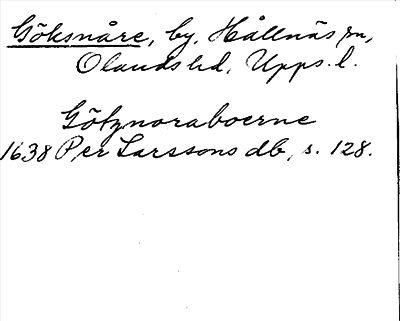 Göksnåre, by, Hållnäs sn,
Olands hd, Upps. l.
Götznoraboerne
1638 Per Larssons db, s. 128.